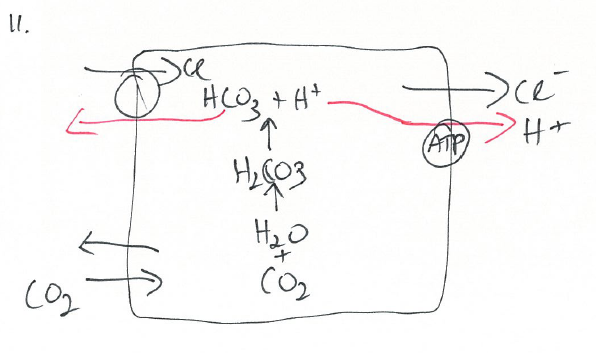 11.
Cl
HCO3 + H+
Cl-
H+
ATP
H2CO3
H2O
+
CO2
CO2